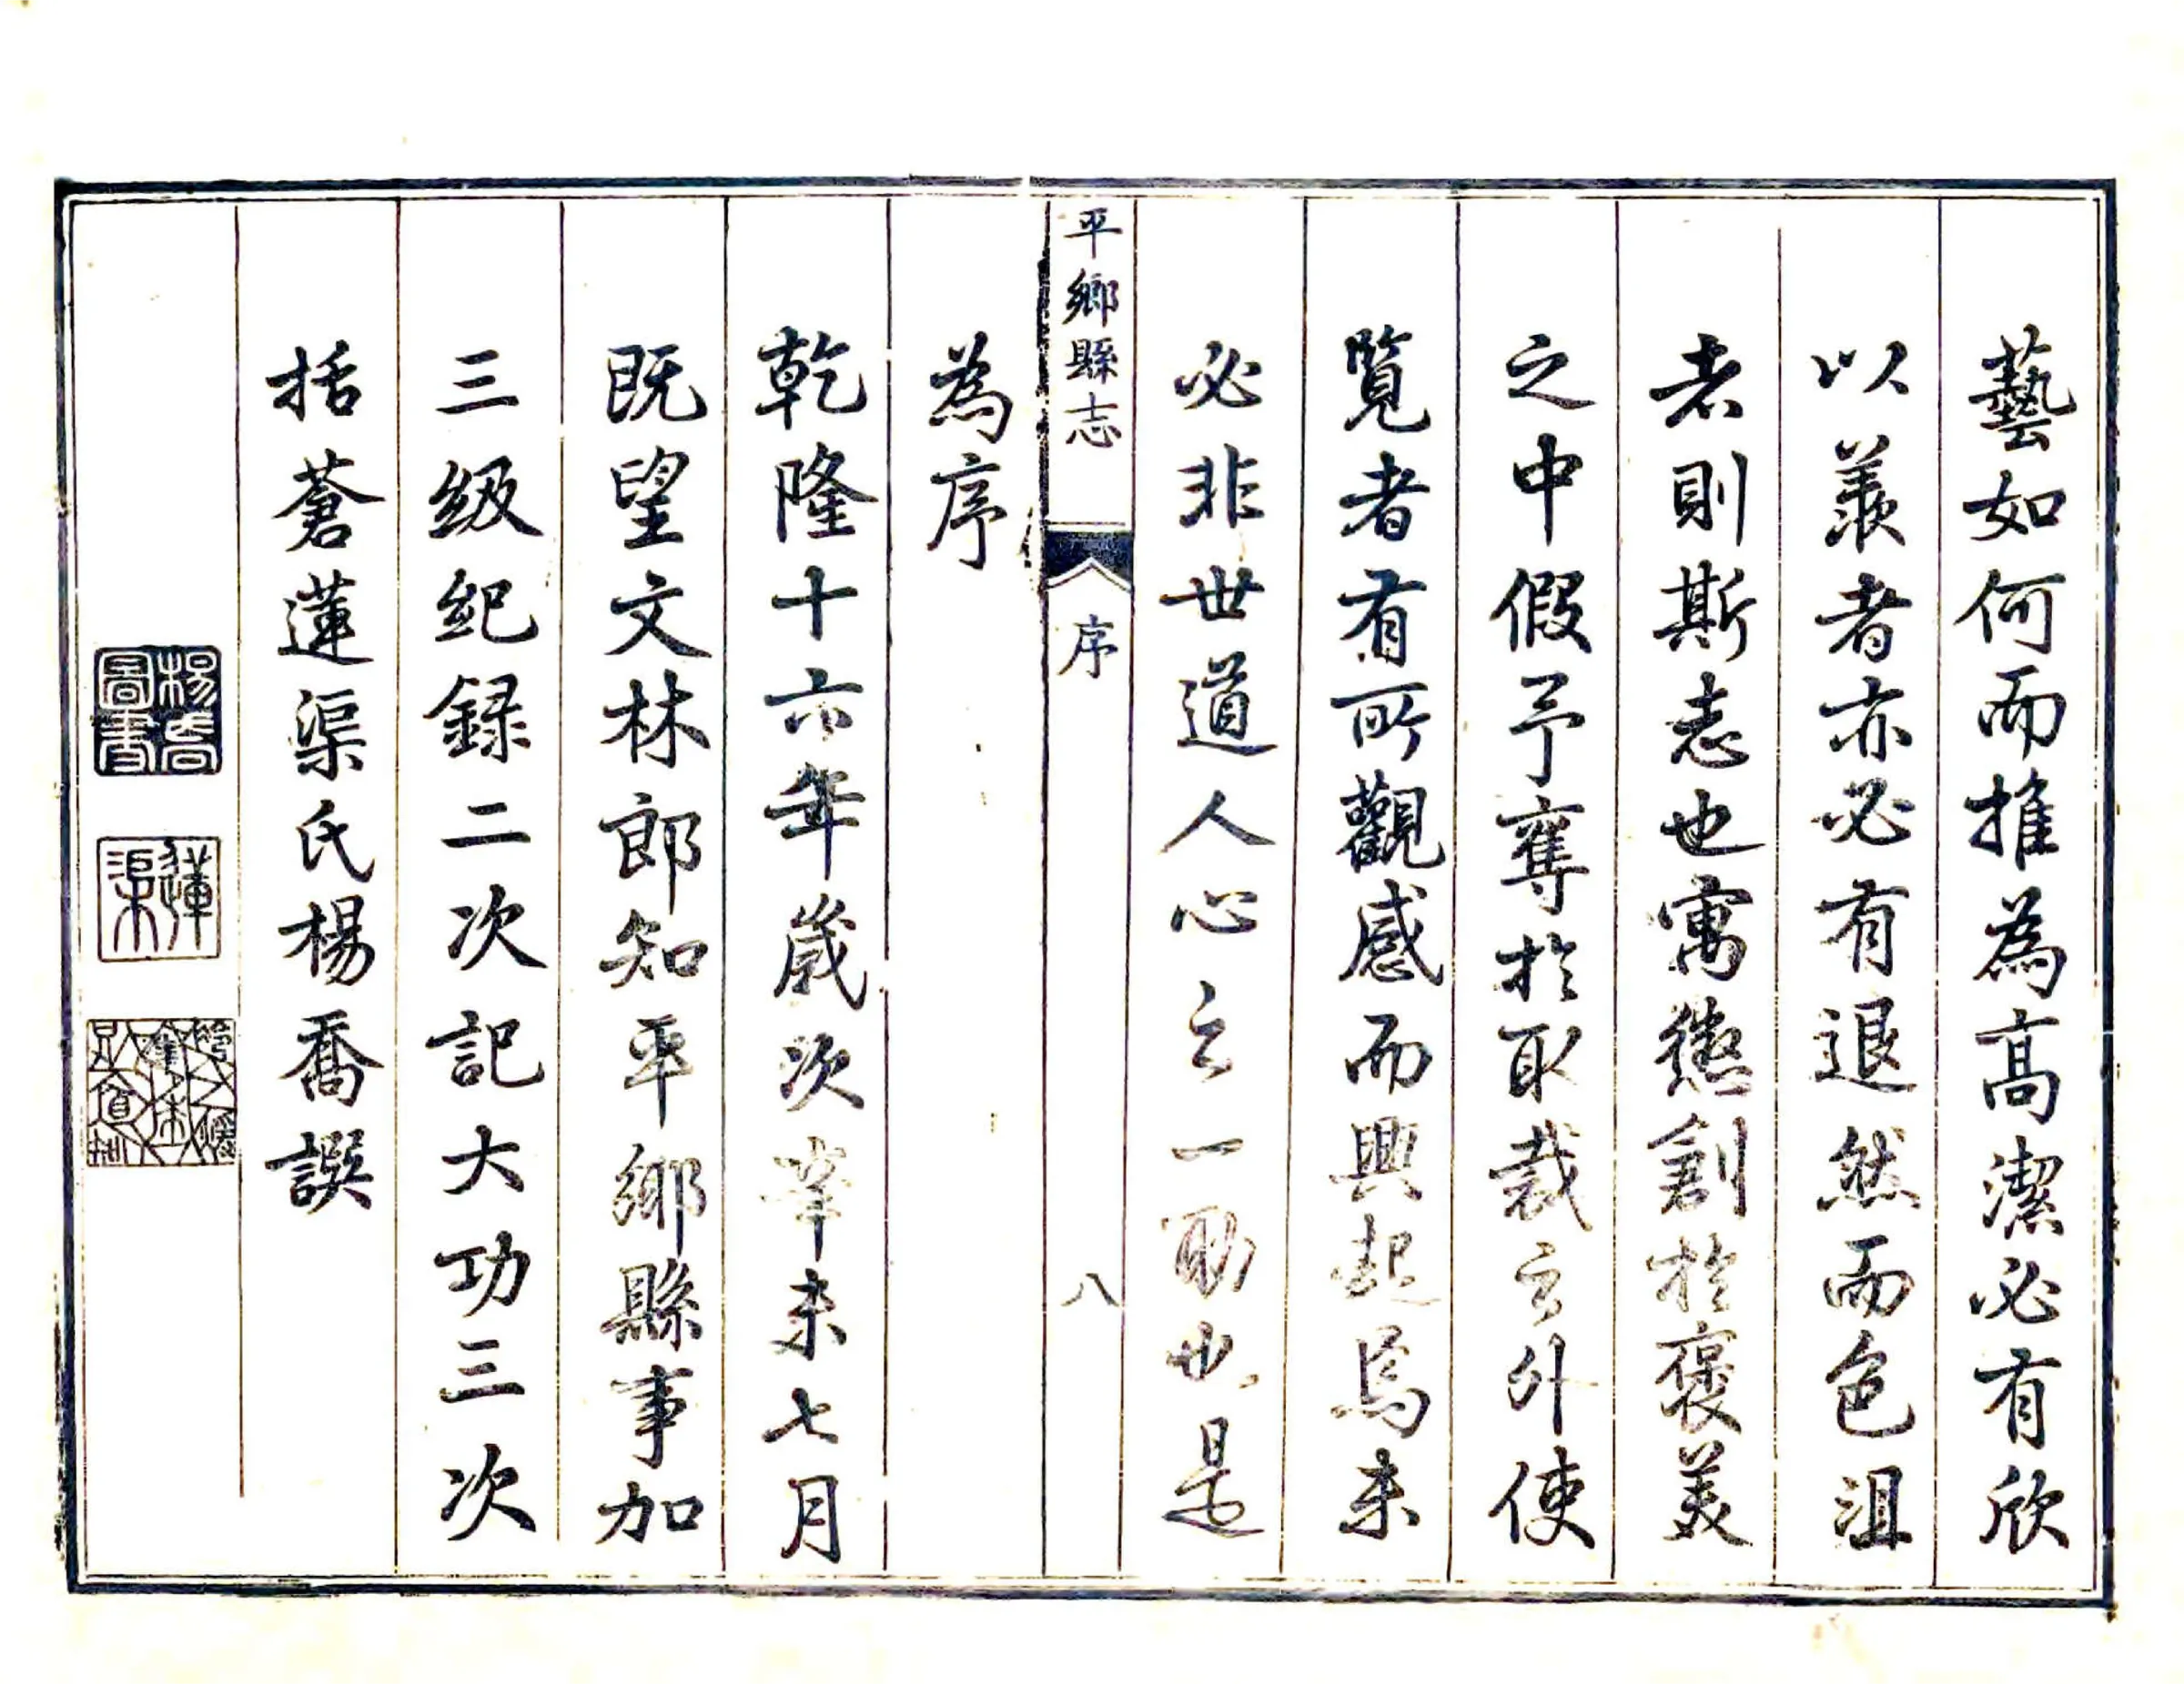 藝如何而推為髙潔必有欣
以羨者亦必有退然而色沮
者則斯志也寓懲創於褒美
之中假予奪於取裁之外使
覧者有所觀感而興起焉未
必非世道人心之一助也是
平鄉縣志
序
八
為序
乾隆十六年歲次辛未七月
既望文林郎知平鄉縣事加
三級紀録二次記大功三次
括蒼蓮渠氏楊喬譔
楊喬圖書
蓮渠